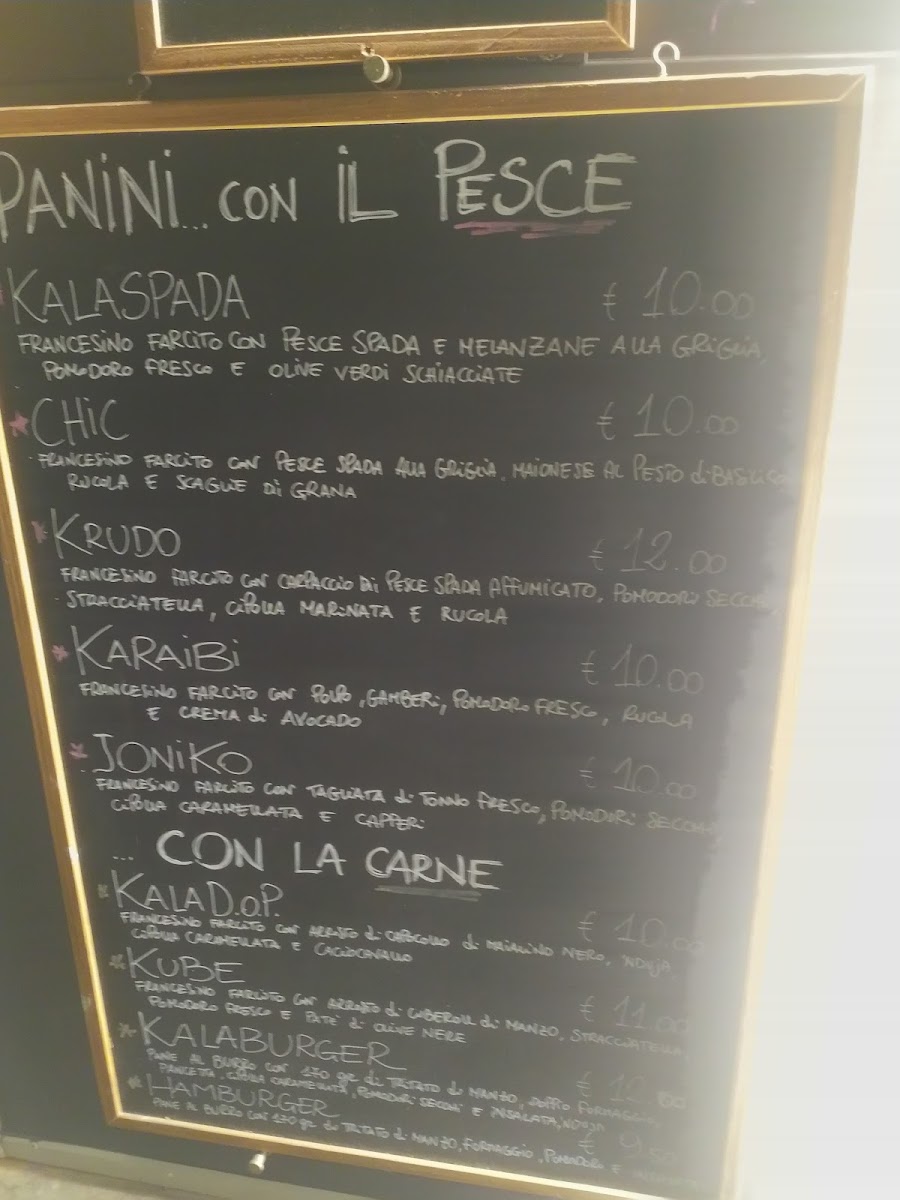 PANINI... CON IL PESCE
KALASPADA € 10.00
FRANCESINO FARCITO CON PESCE SPADA E MELANZANE ALLA GRIGLIA,
POMODORO FRESCO E OLIVE VERDI SCHIACCIATE
CHIC € 10.00
FRANCESINO FARCITO CON PESCE SPADA ALLA GRIGLIA, MAIONESE AL PESTO di BASILICO
RUCOLA E SCAGLIE DI GRANA
KRUDO € 12.00
FRANCESINO FARCITO CON CARPACCIO DI PESCE SPADA AFFUMICATO, POMODORI SECCHI,
STRACCIATELLA, CIPOLLA MARINATA E RUCOLA
KARAIBI € 10.00
FRANCESINO FARCITO CON POLPO, GAMBERI, POMODORO FRESCO, RUCOLA
E CREMA di AVOCADO
JONIKO € 10.00
FRANCESINO FARCITO CON TAGLIATA di TONNO FRESCO, POMODORI SECCHI,
CIPOLLA CARAMELLATA E CAPPERI
... CON LA CARNE
KALAD.O.P. € 10.00
FRANCESINO FARCITO CON ARROSTO di CAPICOLLO di MAIALINO NERO, 'NDUJA,
CIPOLLA CARAMELLATA E CACIOCAVALLO
KUBE € 11.00
FRANCESINO FARCITO CON ARROSTO di CUBEROLL di MANZO, STRACCIATELLA,
POMODORO FRESCO E PATE' di OLIVE NERE
KALABURGER €
PANE AL BURRO CON 170 gr di TRITATO di MANZO, DOPPIO FORMAGGIO,
PANCETTA, CIPOLLA CARAMELLATA, POMODORI SECCHI E INSALATA, NDUJA
HAMBURGER € 9.50
PANE AL BURRO CON 170 gr di TRITATO di MANZO, FORMAGGIO, POMODORI E INSALATA